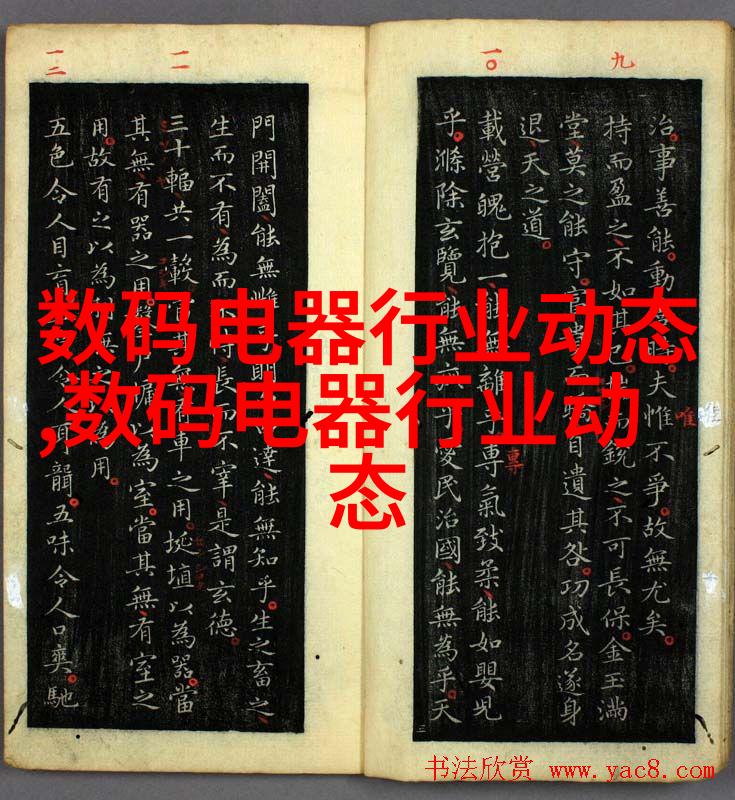 九
治。事善能。動時。夫惟不爭。故無尤矣。
持而盈之、不如其之、不可長保。金玉滿
堂、莫之能守。自遺其咎。功成名遂身
退、天之道。
一〇
載營魄抱一、能無離乎、專氣致柔、能如嬰兒
乎。滌除玄覽、能無乎、愛民治國、能無為乎。天
門開闔、能無達、能無知乎。生之畜之、
生而不有、為而不長而不宰、是謂玄德。
一一
三十輻、共一轂、無有車之用。埏埴以為器、當
其無、有器之用。戶牖以為室。當其無、有室之
用。故有之以為無為用。
一二
五色令人目盲令人耳聾。五味令人口爽。馳
唯
專
数码电器行业动态
,数码电器行业动
态
书法欣赏 www.yac8.com